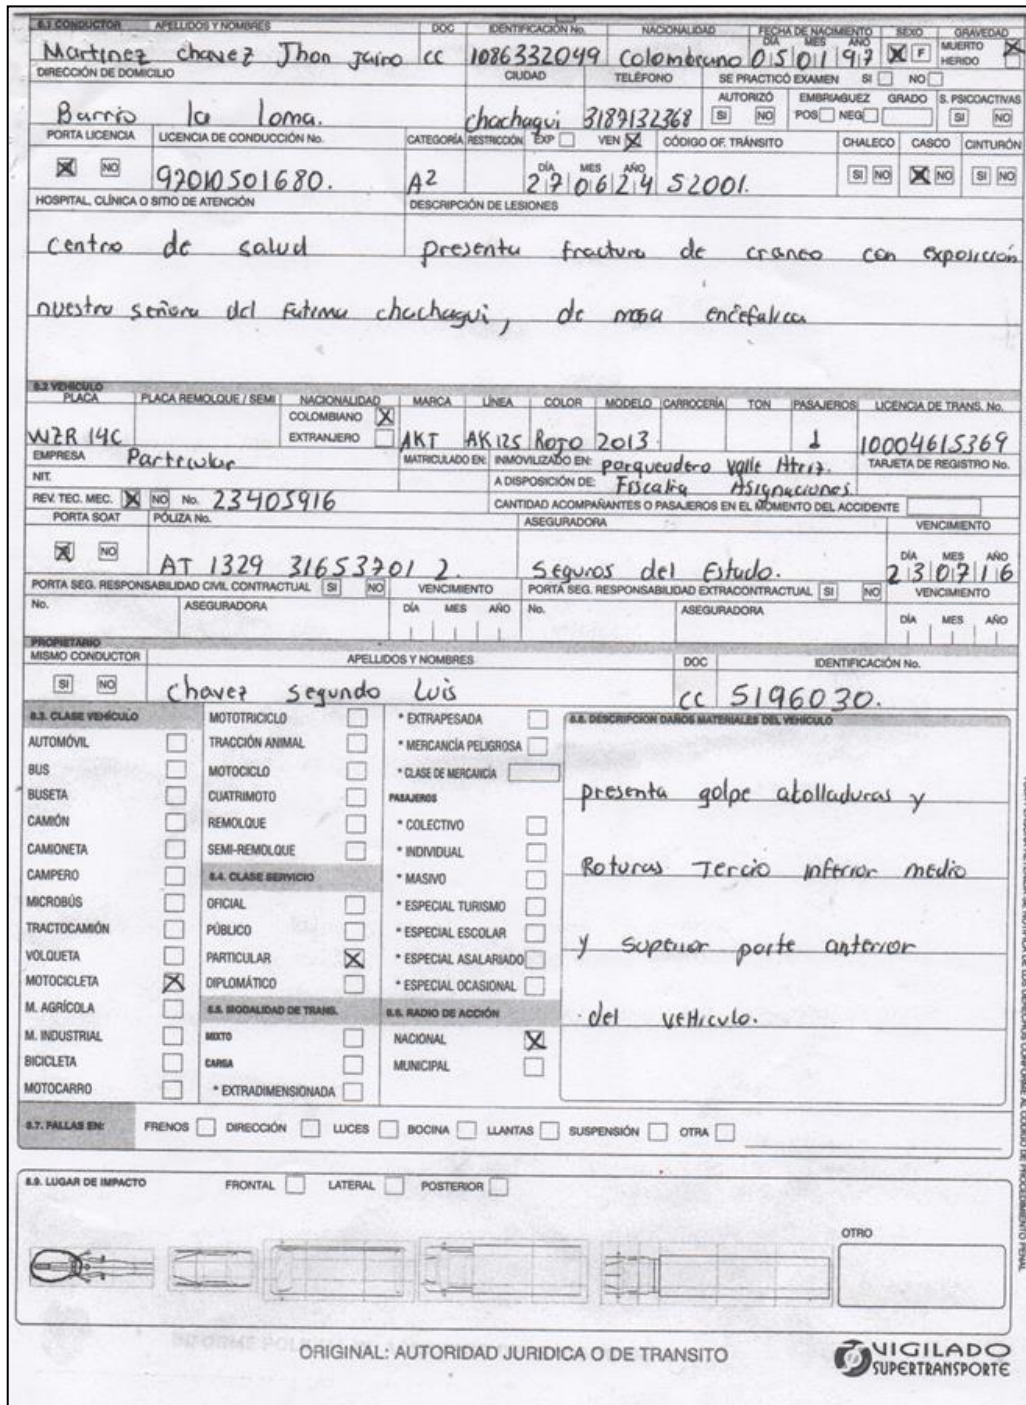 8.1 CONDUCTOR APELLIDOS Y NOMBRES DOC IDENTIFICACIÓN No. NACIONALIDAD FECHA DE NACIMIENTO SEXO GRAVEDAD
DÍA MES AÑO MUERTO
Martinez chavez Jhon Jairo cc 1086332049 Colombiano 05 01 97 F HERIDO
DIRECCIÓN DE DOMICILIO CIUDAD TELÉFONO SE PRACTICÓ EXAMEN SI NO
AUTORIZÓ EMBRIAGUEZ GRADO S. PSICOACTIVAS
Barrio la loma. chachagui 3187132368 SI NO POS NEG SI NO
PORTA LICENCIA LICENCIA DE CONDUCCIÓN No. CATEGORÍA RESTRICCIÓN EXP VEN CÓDIGO OF. TRÁNSITO CHALECO CASCO CINTURÓN
DÍA MES AÑO
NO 97010501680. A2 27 06 24 52001. SI NO NO SI NO
HOSPITAL, CLÍNICA O SITIO DE ATENCIÓN DESCRIPCIÓN DE LESIONES
centro de salud presenta fractura de craneo con exposición
nuestra señora del Fatima chachagui, de masa encefalica
8.2 VEHICULO
PLACA PLACA REMOLQUE / SEMI NACIONALIDAD MARCA LÍNEA COLOR MODELO CARROCERÍA TON PASAJEROS LICENCIA DE TRANS. No.
COLOMBIANO
WZR 14C EXTRANJERO AKT AK125 Rojo 2013 1 10004615369
EMPRESA Particular MATRICULADO EN: INMOVILIZADO EN: parqueadero Valle Atriz. TARJETA DE REGISTRO No.
NIT. A DISPOSICIÓN DE: Fiscalia Asignaciones.
REV. TEC. MEC. NO No. 23405916 CANTIDAD ACOMPAÑANTES O PASAJEROS EN EL MOMENTO DEL ACCIDENTE
PORTA SOAT PÓLIZA No. ASEGURADORA VENCIMIENTO
DÍA MES AÑO
NO AT 1329 31653701 2. Seguros del Estado. 23 07 16
PORTA SEG. RESPONSABILIDAD CIVIL CONTRACTUAL SI NO VENCIMIENTO PORTA SEG. RESPONSABILIDAD EXTRACONTRACTUAL SI NO VENCIMIENTO
No. ASEGURADORA DÍA MES AÑO No. ASEGURADORA DÍA MES AÑO
PROPIETARIO
MISMO CONDUCTOR APELLIDOS Y NOMBRES DOC IDENTIFICACIÓN No.
SI NO chavez segundo Luis cc 5196030.
8.3. CLASE VEHÍCULO
AUTOMÓVIL
BUS
BUSETA
CAMIÓN
CAMIONETA
CAMPERO
MICROBÚS
TRACTOCAMIÓN
VOLQUETA
MOTOCICLETA
M. AGRÍCOLA
M. INDUSTRIAL
BICICLETA
MOTOCARRO
MOTOTRICICLO
TRACCIÓN ANIMAL
MOTOCICLO
CUATRIMOTO
REMOLQUE
SEMI-REMOLQUE
8.4. CLASE SERVICIO
OFICIAL
PÚBLICO
PARTICULAR
DIPLOMÁTICO
8.5. MODALIDAD DE TRANS.
MIXTO
CARGA
* EXTRADIMENSIONADA
* EXTRAPESADA
* MERCANCÍA PELIGROSA
* CLASE DE MERCANCÍA
PASAJEROS
* COLECTIVO
* INDIVIDUAL
* MASIVO
* ESPECIAL TURISMO
* ESPECIAL ESCOLAR
* ESPECIAL ASALARIADO
* ESPECIAL OCASIONAL
8.6. RADIO DE ACCIÓN
NACIONAL
MUNICIPAL
8.8. DESCRIPCION DAÑOS MATERIALES DEL VEHÍCULO
presenta golpe abolladuras y
Roturas Tercio inferior medio
y superior parte anterior
del veHiculo.
8.7. FALLAS EN: FRENOS DIRECCIÓN LUCES BOCINA LLANTAS SUSPENSIÓN OTRA
8.9. LUGAR DE IMPACTO FRONTAL LATERAL POSTERIOR
OTRO
ORIGINAL: AUTORIDAD JURIDICA O DE TRANSITO
VIGILADO
SUPERTRANSPORTE